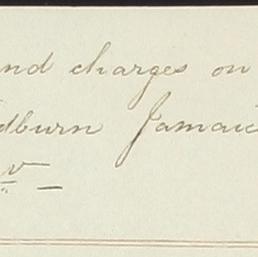 and charges on
dburn Jamaic